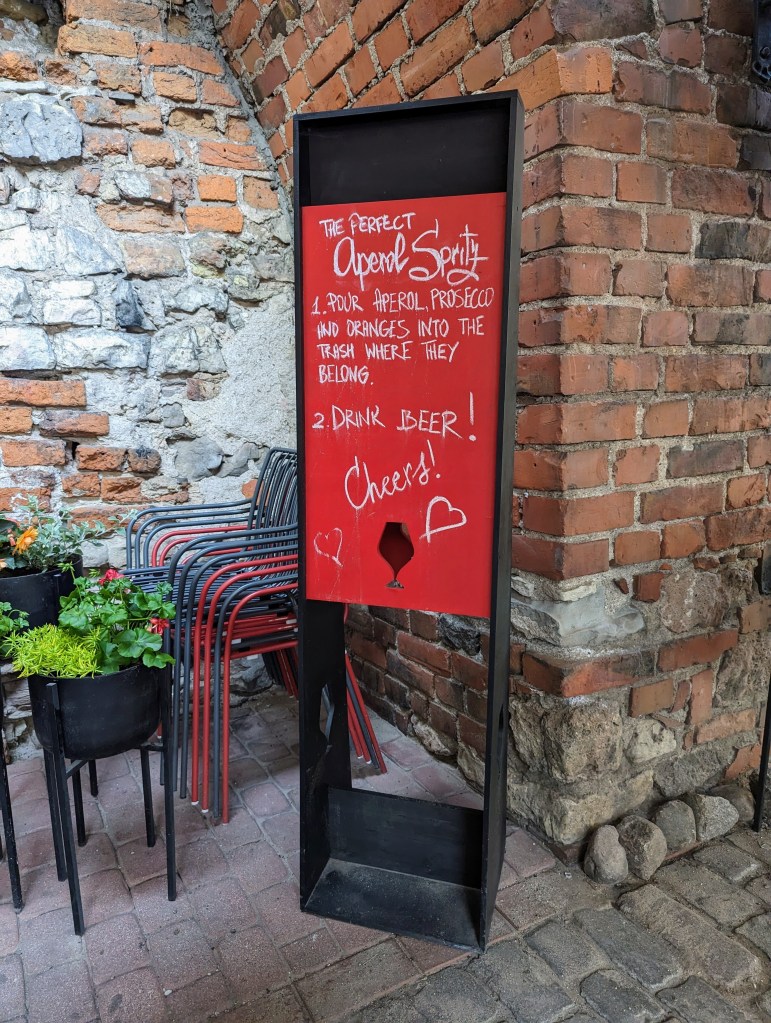 THE PERFECT
Aperol Spritz
1. POUR APEROL, PROSECCO
AND ORANGES INTO THE
TRASH WHERE THEY
BELONG.
2. DRINK BEER!
Cheers!